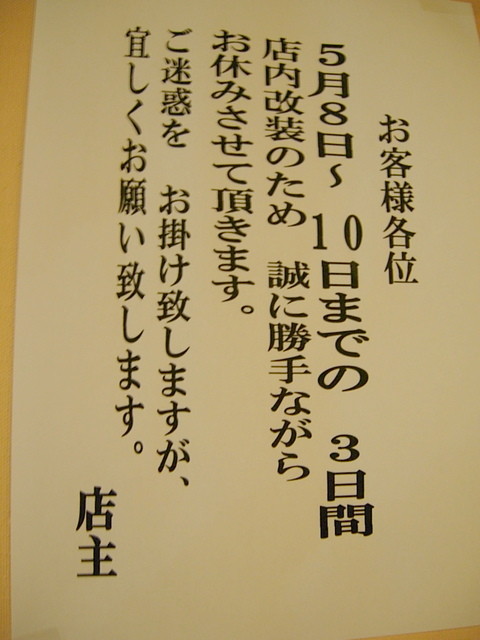 お客様各位
5月8日～ 10日までの 3日間
店内改装のため 誠に勝手ながら
お休みさせて頂きます。
ご迷惑を お掛け致しますが、
宜しくお願い致します。
店主